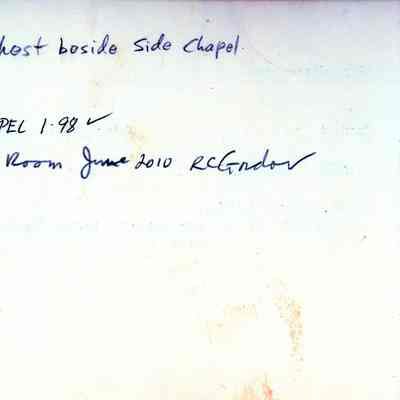 hest beside Side Chapel.
PEL 1.98 ✓
Room June 2010 RCGordon